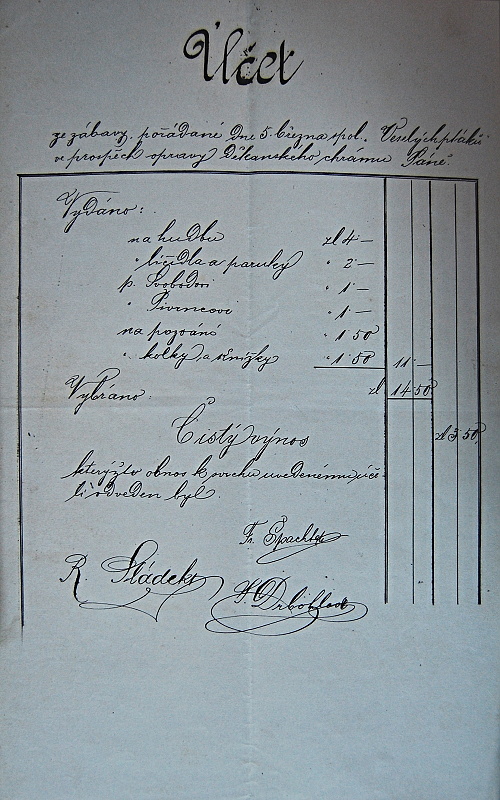 Účet
ze zábavy, pořádané dne 5. března spol. Veselých ptáků
ve prospěch opravy Děkanského chrámu Páně.
Vydáno:
na hudbu zl 4 —
" líčidla a paruky " 2 —
p. Svobodovi " 1 —
" Pivencovi " 1 —
na pozvání " 1 50
" kolky, a " 1 50 11 —
Vybráno zl 14 50
Čistý výnos zl 3 50
kterýžto obnos k svrchu uvedenému úče-
li odveden byl.
Fr. Špachta
R. Sládek
Drbohlav